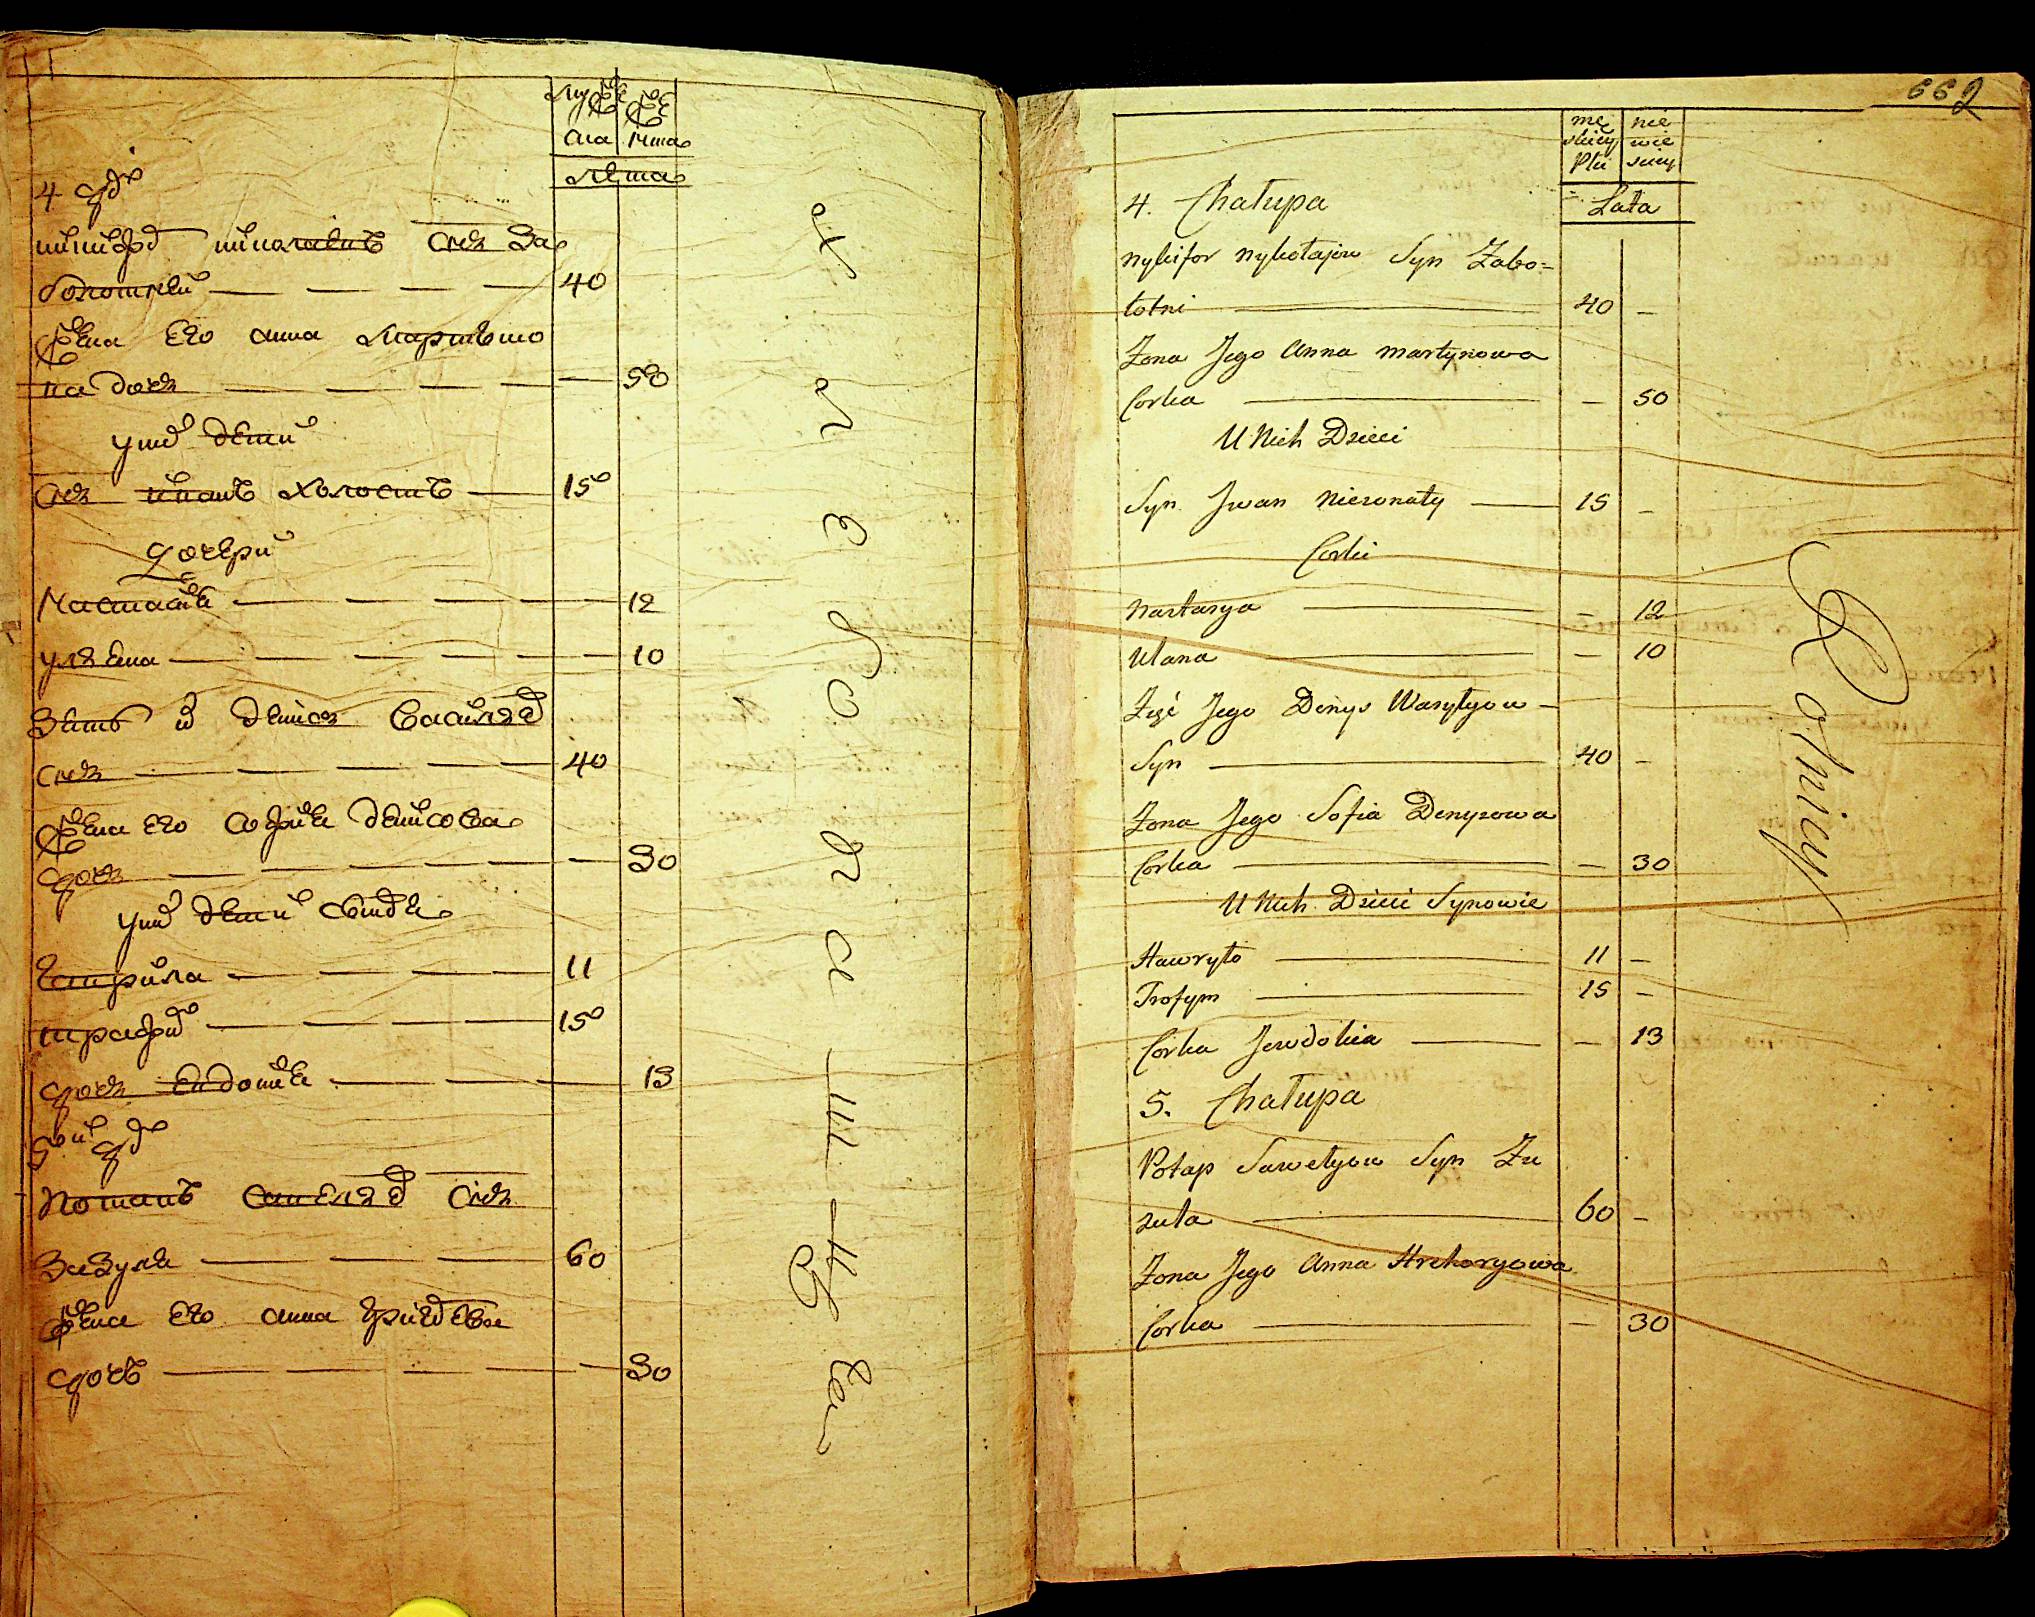 муже
ска
жε
нска
лета
4 двр
никифор николаевъ сын За
болотний 40
жена его анна мартино
ва дочь 50
у них дети
сын иванъ холостъ 15
дочери
настасия 12
уляна 10
Зять их денис василев
сын 40
жена его софия денисова
дочь 30
у них дети
гаврила 11
трафим 15
дочь евдокия 13
5 двр
Потапъ савелев сын
Зазуля 60
жена его анна григорева
дочь 30
хлебопа
662
mę
skiey
Płci
nie
wie
sciey
Lata
4. Chałupa
Nykifor Nykołajow Syn Zabo=
łotni 40 -
Zona Jego Anna Martynowa
Corka - 50
U Nich Dzieci
Syn Jwan Niezonaty 15 -
Corki
Nastasya - 12
Ulana - 10
Zięć Jego Denys Wasylyow
Syn 40 -
Zona Jego Sofia Denysowa
Corka - 30
U Nich Dzieci Synowie
Hawryło 11 -
Trofym 15 -
Corka Jewdokia - 13
5. Chałupa
Potap Sawelyow Syn Za
zula 60 -
Zona Jego Anna Hrehoryowa
Corka - 30
Rolnicy